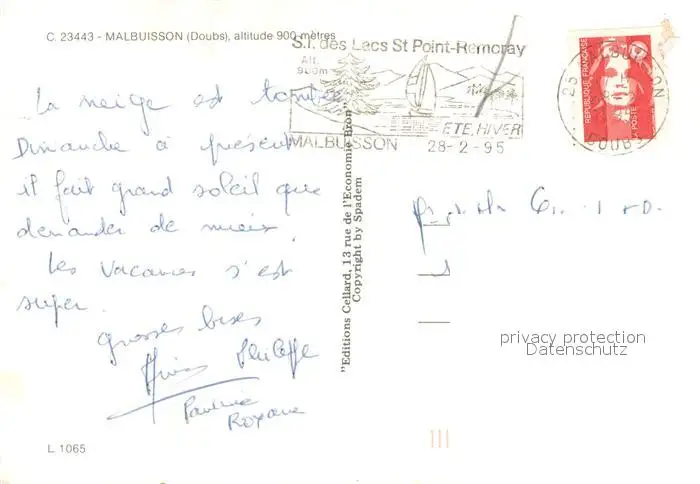 C. 23443 - MALBUISSON (Doubs), altitude 900 mètres
S.I. des Lacs St Point-Remoray
Alt.
900m
ÉTÉ, HIVER
MALBUISSON
28-2-95
25 MALBUISSON
DOUBS
REPUBLIQUE FRANÇAISE
LA POSTE
La neige est tombée
Dimanche à présent
il fait grand soleil que
demander de mieux.
Les vacances s'est
super.
grosses bises
Philippe
Pauline
Roxane
"Editions Cellard, 13 rue de l'Economie Bron"
Copyright by Spadem
privacy protection
Datenschutz
L 1065